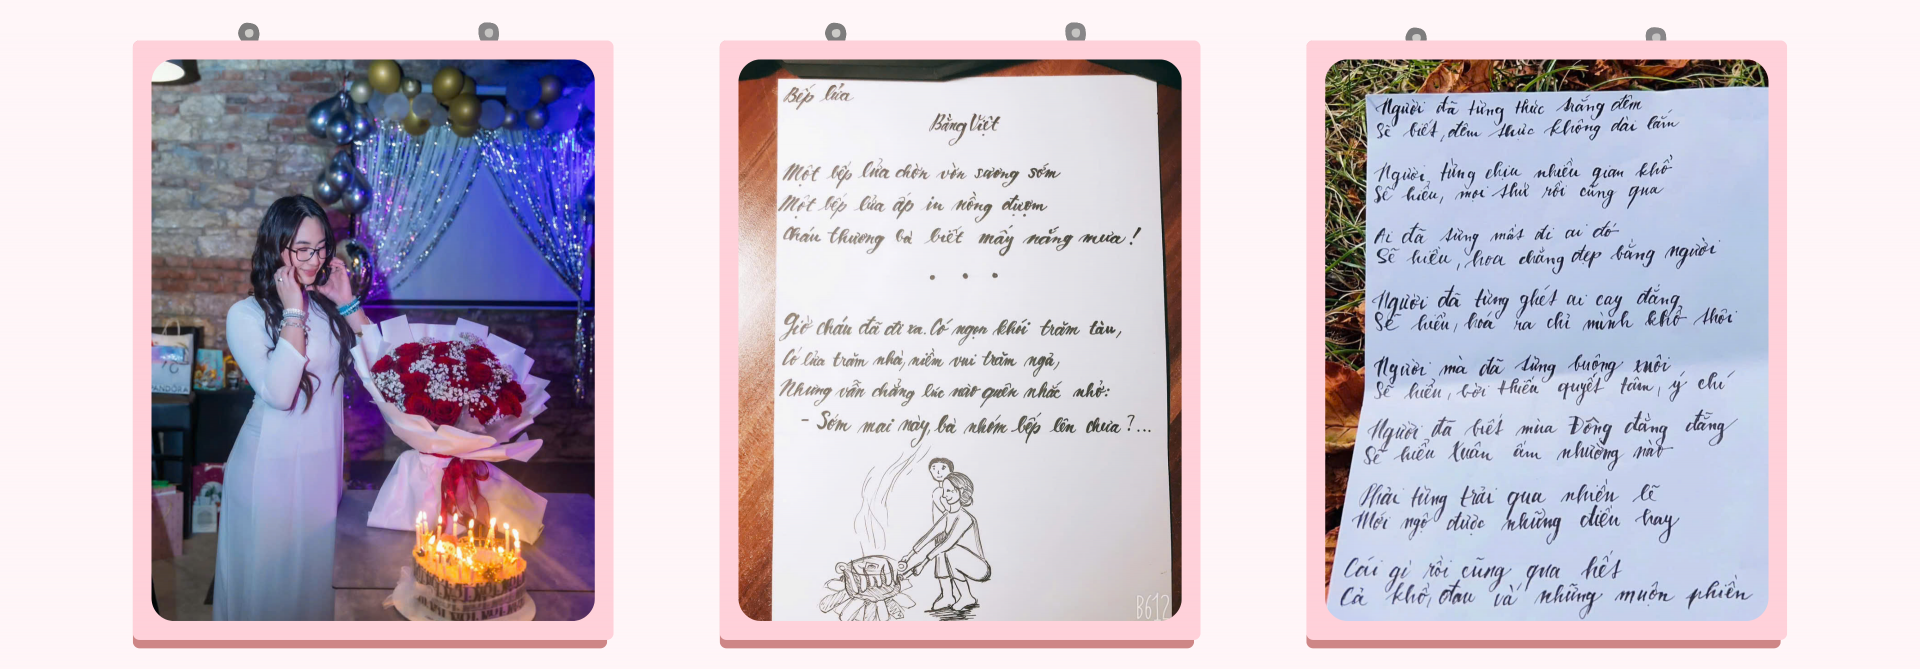 PANDORA
Bếp lửa
Bằng Việt
Một bếp lửa chờn vờn sương sớm
Một bếp lửa ấp iu nồng đượm
Cháu thương bà biết mấy nắng mưa!
...
Giờ cháu đã đi xa. Có ngọn khói trăm tàu,
Có lửa trăm nhà, niềm vui trăm ngả,
Nhưng vẫn chẳng lúc nào quên nhắc nhở:
- Sớm mai này, bà nhóm bếp lên chưa?...
B612
Người đã từng thức trắng đêm
Sẽ biết, đêm thực không dài lắm
Người từng chịu nhiều gian khổ
Sẽ hiểu, mọi thứ rồi cũng qua
Ai đã từng mất đi ai đó
Sẽ hiểu, hoa chẳng đẹp bằng người
Người đã từng ghét ai cay đắng
Sẽ hiểu, hoá ra chỉ mình khổ thôi
Người mà đã từng buông xuôi
Sẽ hiểu, bởi thiếu quyết tâm, ý chí
Người đã biết mùa Đông đằng đẵng
Sẽ hiểu Xuân ấm nhường nào
Phải từng trải qua nhiều lẽ
Mới ngộ được những điều hay
Cái gì rồi cũng qua hết
Cả khổ, đau và những muộn phiền